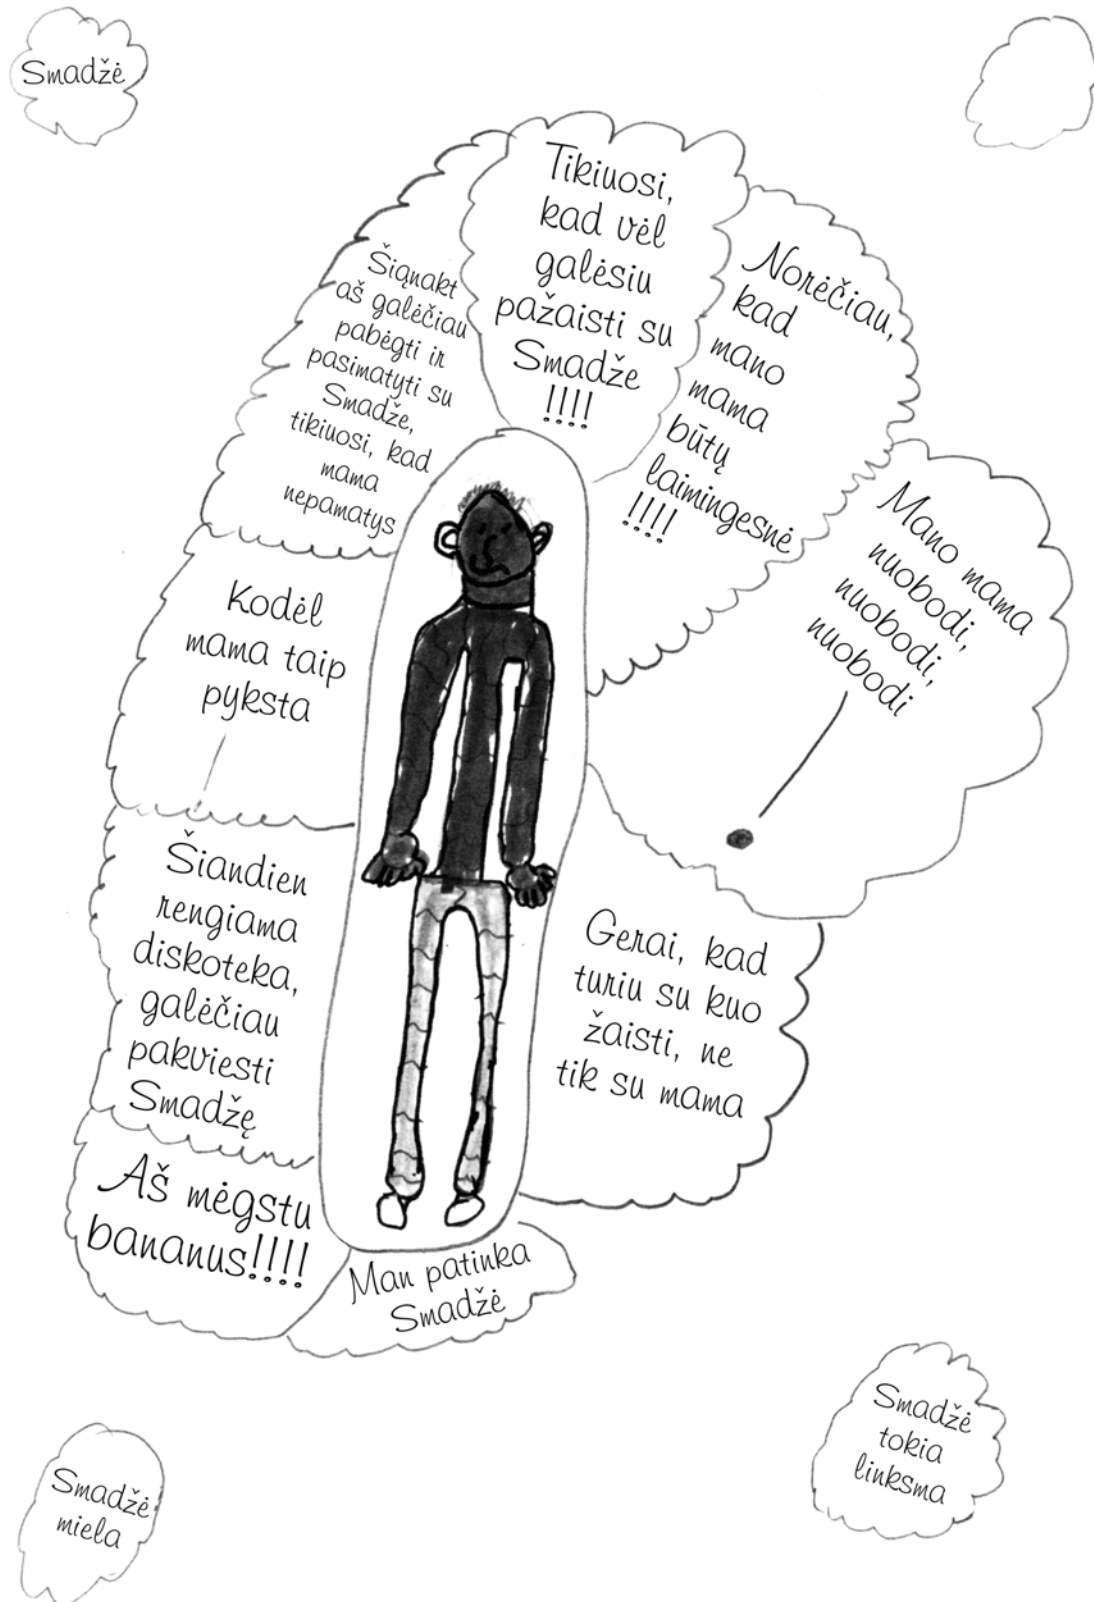 Smadžė
Tikiuosi,
kad vėl
galėsiu
pažaisti su
Smadže
!!!!
Norėčiau,
kad
mano
mama
būtų
laimingesnė
!!!!
Šiąnakt
aš galėčiau
pabėgti ir
pasimatyti su
Smadže,
tikiuosi, kad
mama
nepamatys
Mano mama
nuobodi,
nuobodi,
nuobodi
Kodėl
mama taip
pyksta
Šiandien
rengiama
diskoteka,
galėčiau
pakviesti
Smadžę
Gerai, kad
turiu su kuo
žaisti, ne
tik su mama
Aš mėgstu
bananus!!!!
Man patinka
Smadžė
Smadžė
tokia
linksma
Smadžė
miela